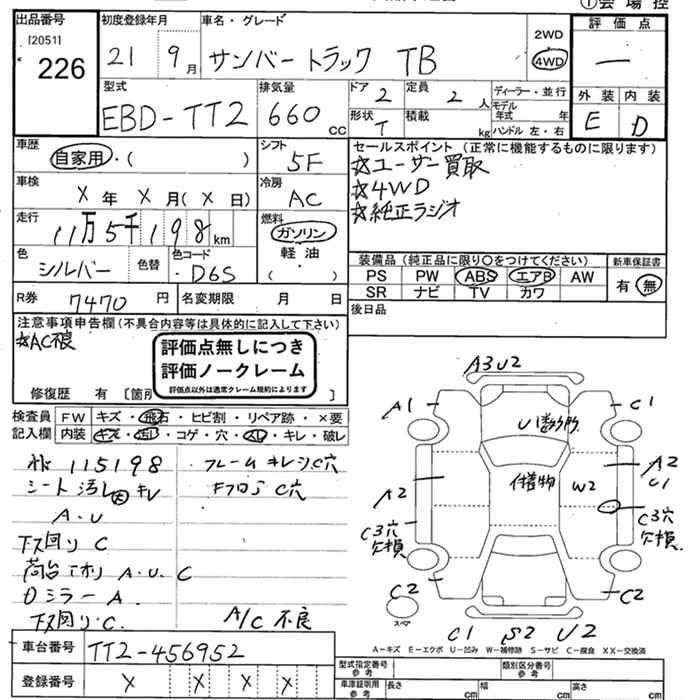 ①会場控
出品番号 初度登録年月 車名・グレード 2WD 評価点
[2051] 226 21 9月 サンバートラック TB 4WD ー
型式 排気量 ドア 2 定員 2人 ディーラー・並行 外装 内装
EBD-TT2 660cc 形状 T 積載 kg モデル年式 年 ハンドル 左・右 E D
車歴 自家用・( ) シフト 5F セールスポイント (正常に機能するものに限ります)
☆ユーザー買取
車検 X年 X月(X日) 冷房 AC ☆4WD
☆純正ラジオ
走行 11万5千198km 燃料 ガソリン
軽油
( )
装備品 (純正品に限り○をつけてください) 新車保証書
色 シルバー 色替 色コード D6S PS PW ABS エアB AW 有・無
SR ナビ TV カワ
R券 7470円 名変期限 月 日 後日品
注意事項申告欄(不具合内容等は具体的に記入して下さい)
☆AC不良
評価点無しにつき
評価ノークレーム
評価点以外は通常クレーム規約によります
修復歴 有 [箇所 ]
検査員 FW キズ・飛石・ヒビ割・リペア跡・×要
記入欄 内装 キズ・汚れ・コゲ・穴・スレ・キレ・破レ
115198 フレーム キレツ C穴
シート汚レ大 キレ キフロラ C穴
A.U
下ス回り C
荷台アオリ A.U.C
Dミラー A.
下ス回り.C. A/C 不良
A3U2
A1 C1
U1多数所
A2 付着物 W2 A2 C1
C3穴欠損 C3穴欠損
C2 C2
スペア
C1 S2 U2
A-キズ E-エクボ U-凹み W-補修跡 S-サビ C-腐食 XX-交換済
車台番号 TT2-456952
登録番号 X X X X
型式指定番号 参考 類別区分番号 参考
車庫証明用 参考 長さ cm 幅 cm 高さ cm